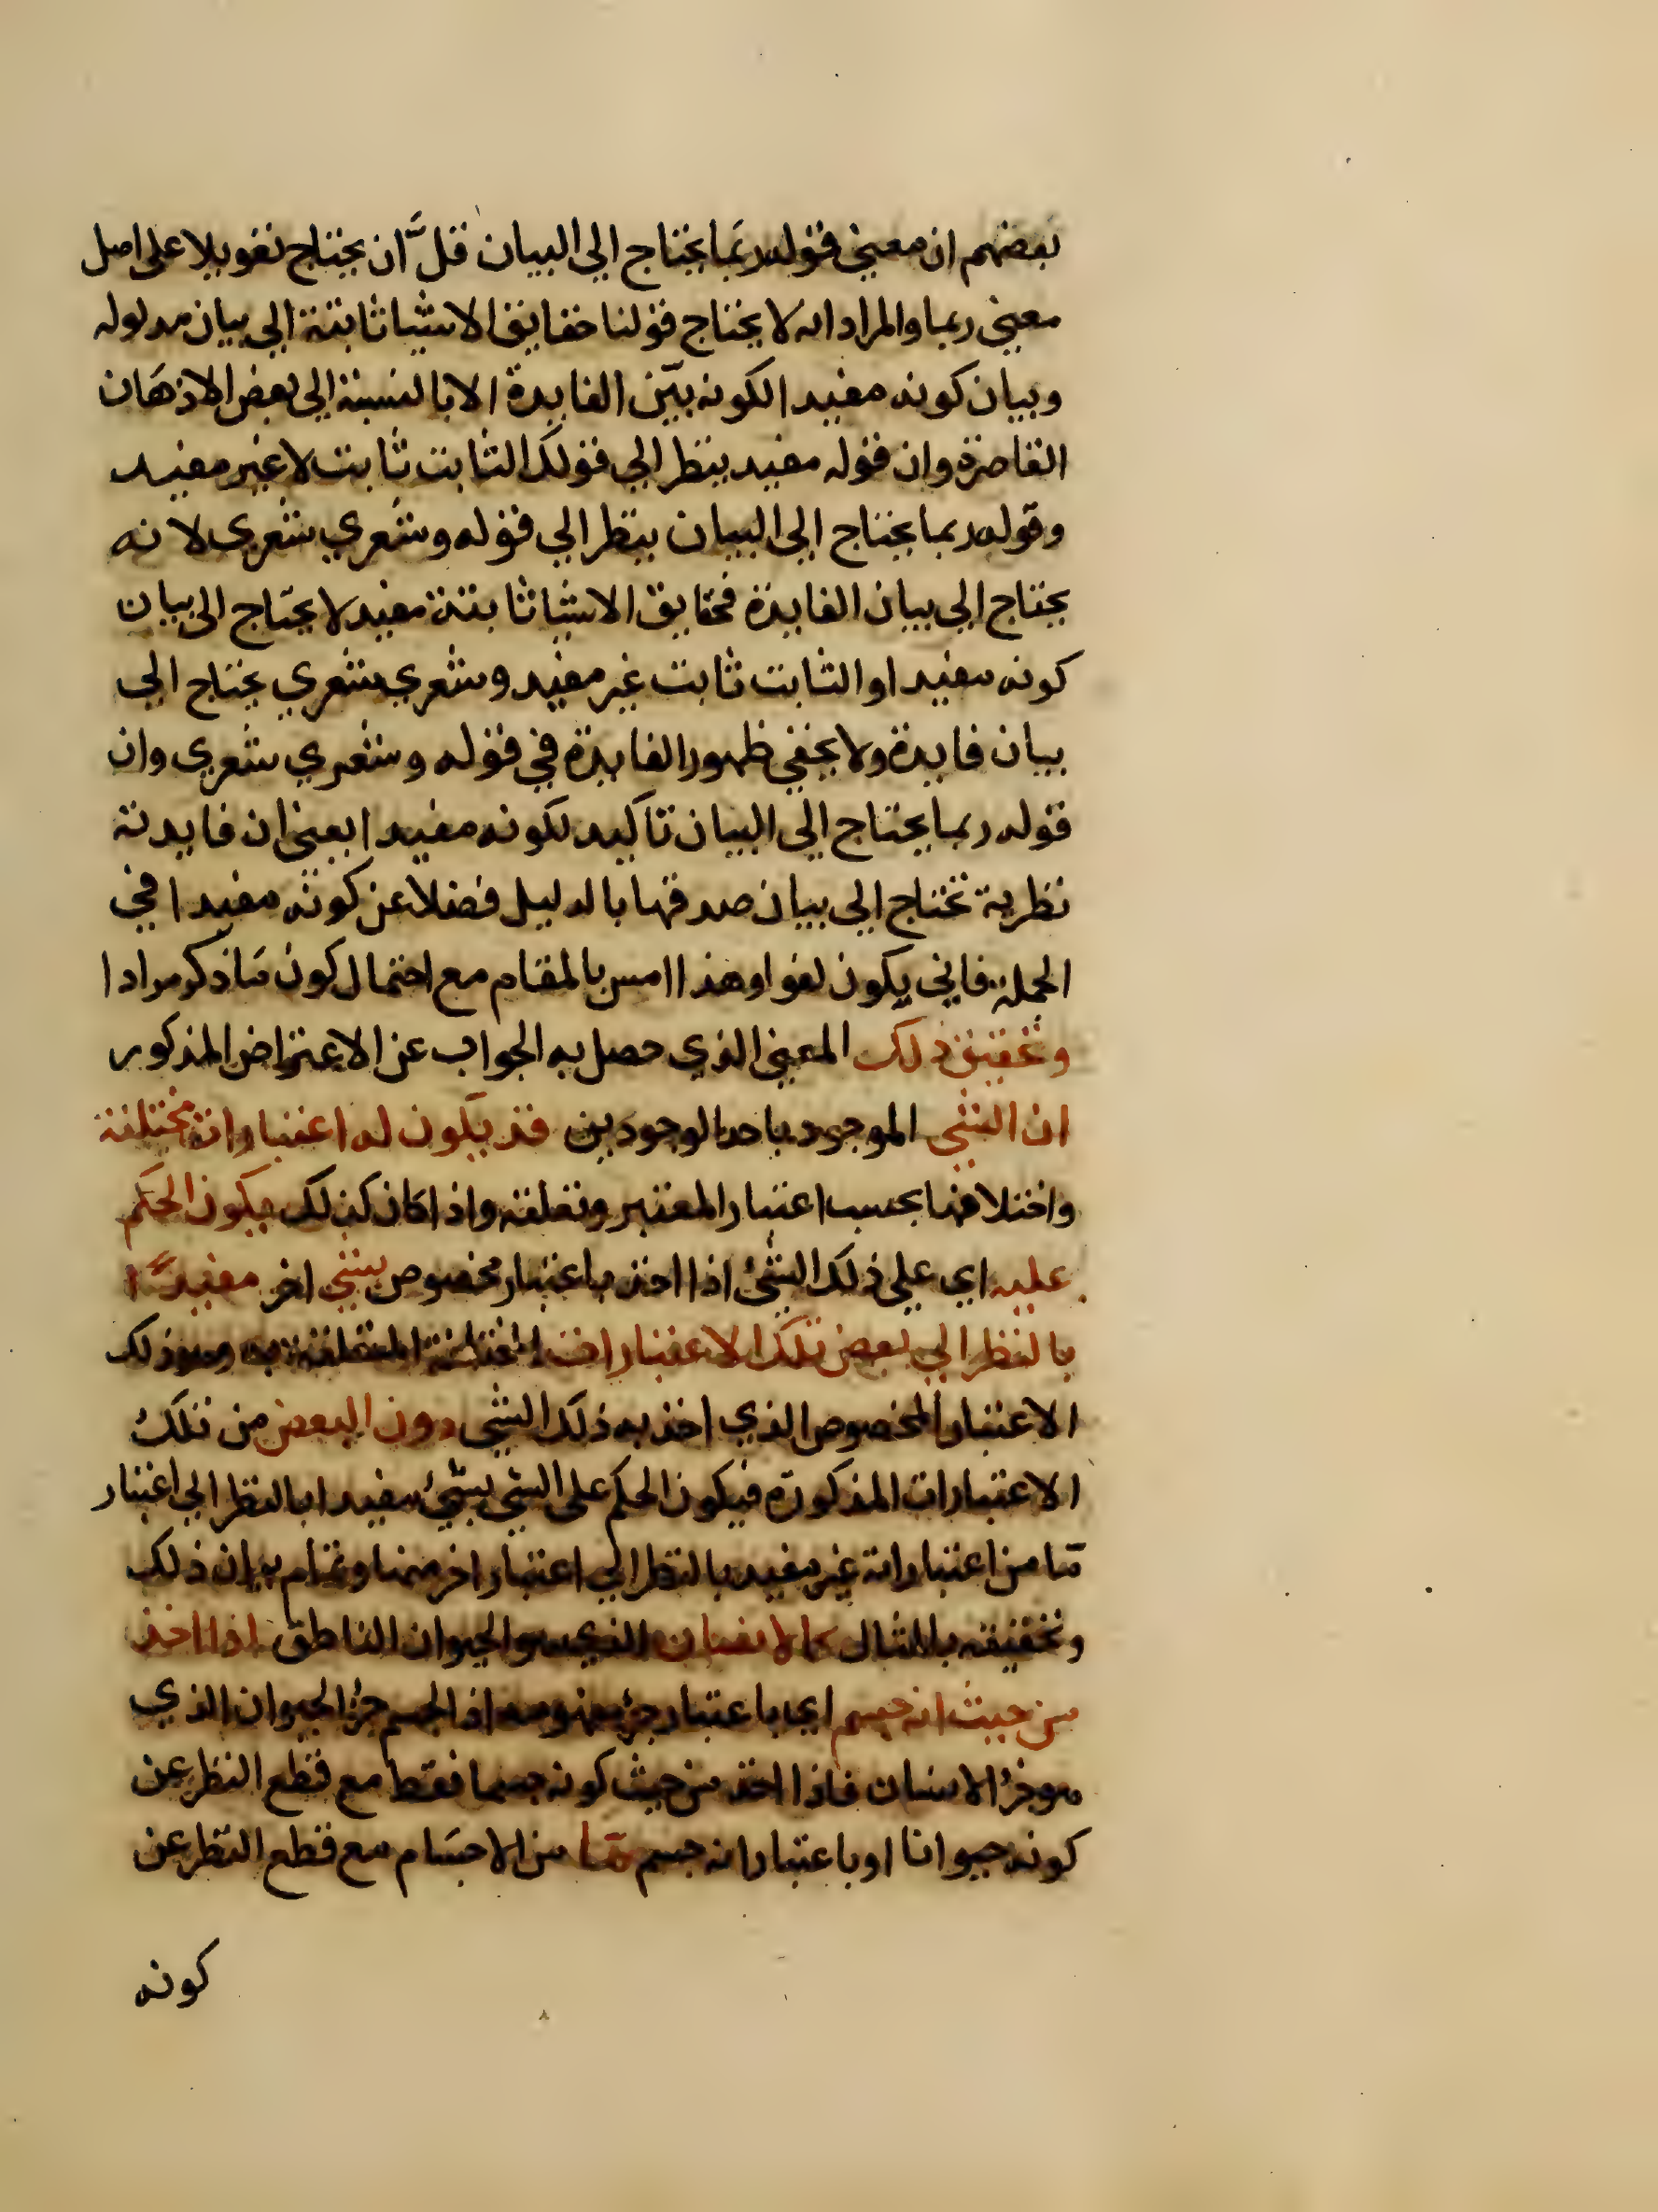 بعضهم ان معني قوله ربما يحتاج الي البيان قلّ ان يحتاج تعويلا على اصل
معني ربما والمراد انه لا يحتاج قولنا حقايق الاشيا ثابتة الي بيان مدلوله
وبيان كونه مفيدا لكونه بيّن الفايدة الا بالنسبة الى بعض الاذهان
القاصرة وان قوله مفيد ينظر الي قولك الثابت ثابت لا غير مفيد
وقوله ربما يحتاج الى البيان ينظر الي قوله وشعري شعري لانه
يحتاج الي بيان الفايدة فحقايق الاشيا ثابتة مفيد لا يحتاج الى بيان
كونه مفيدا والثابت ثابت غير مفيد وشعري شعري يحتاج الي
بيان فايدة ولا يخفي ظهور الفايدة في قوله وشعري شعري وان
قوله ربما يحتاج الي البيان تاكيد لكونه مفيدا بمعني ان فايدته
نظرية تحتاج الي بيان صدقها بالدليل فضلا عن كونه مفيدا في
الجملة فاني يكون لغوا وهذا امس بالمقام مع احتمال كون ما ذكر مرادا
وتحقيق ذلك المعني الذي حصل به الجواب عن الاعتراض المذكور
ان الشي الموجود باحد الوجودين قد يكون له اعتبارات مختلفة
واختلافها بحسب اعتبار المعتبر وتعلقه واذا كان كذلك يكون الحكم
عليه اي علي ذلك الشئ اذا اخذ باعتبار مخصوص بشي اخر مفيدًا
بالنظر الي بعض تلك الاعتبارات المختلفة المتعلقة به وهو ذلك
الاعتبار المخصوص الذي اخذ به ذلك الشي دون البعض من تلك
الاعتبارات المذكورة فيكون الحكم على الشي بشئ مفيدا بالنظر الي اعتبار
ما من اعتباراته غير مفيد بالنظر الي اعتبار اخر منها وتمام بيان ذلك
وتحقيقه بالمثال كالانسان الذي هو الحيوان الناطق اذا اخذ
من حيث انه جسم اي باعتبار جزء مفهومه اذ الجسم جزؤ الحيوان الذي
هو جزؤ الانسان فاذا اخذ من حيث كونه جسما فقط مع قطع النظر عن
كونه حيوانا او باعتبار انه جسم ما من الاجسام مع قطع النظر عن
كونه